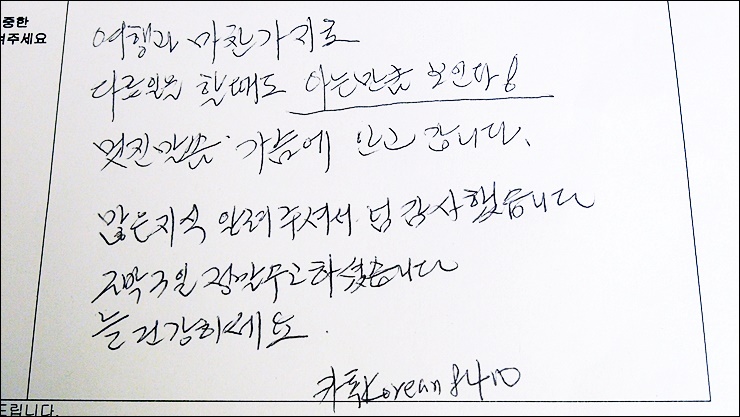 중한
겨주세요
여행과 마찬가지로
다른일을 할때도 아는만큼 보인다!
멋진말씀 가슴에 안고 갑니다.
많은지식 알려주셔서 넘 감사했습니다
2박3일 정말수고하셨습니다
늘건강하세요.
카톡korean8410
드립니다.